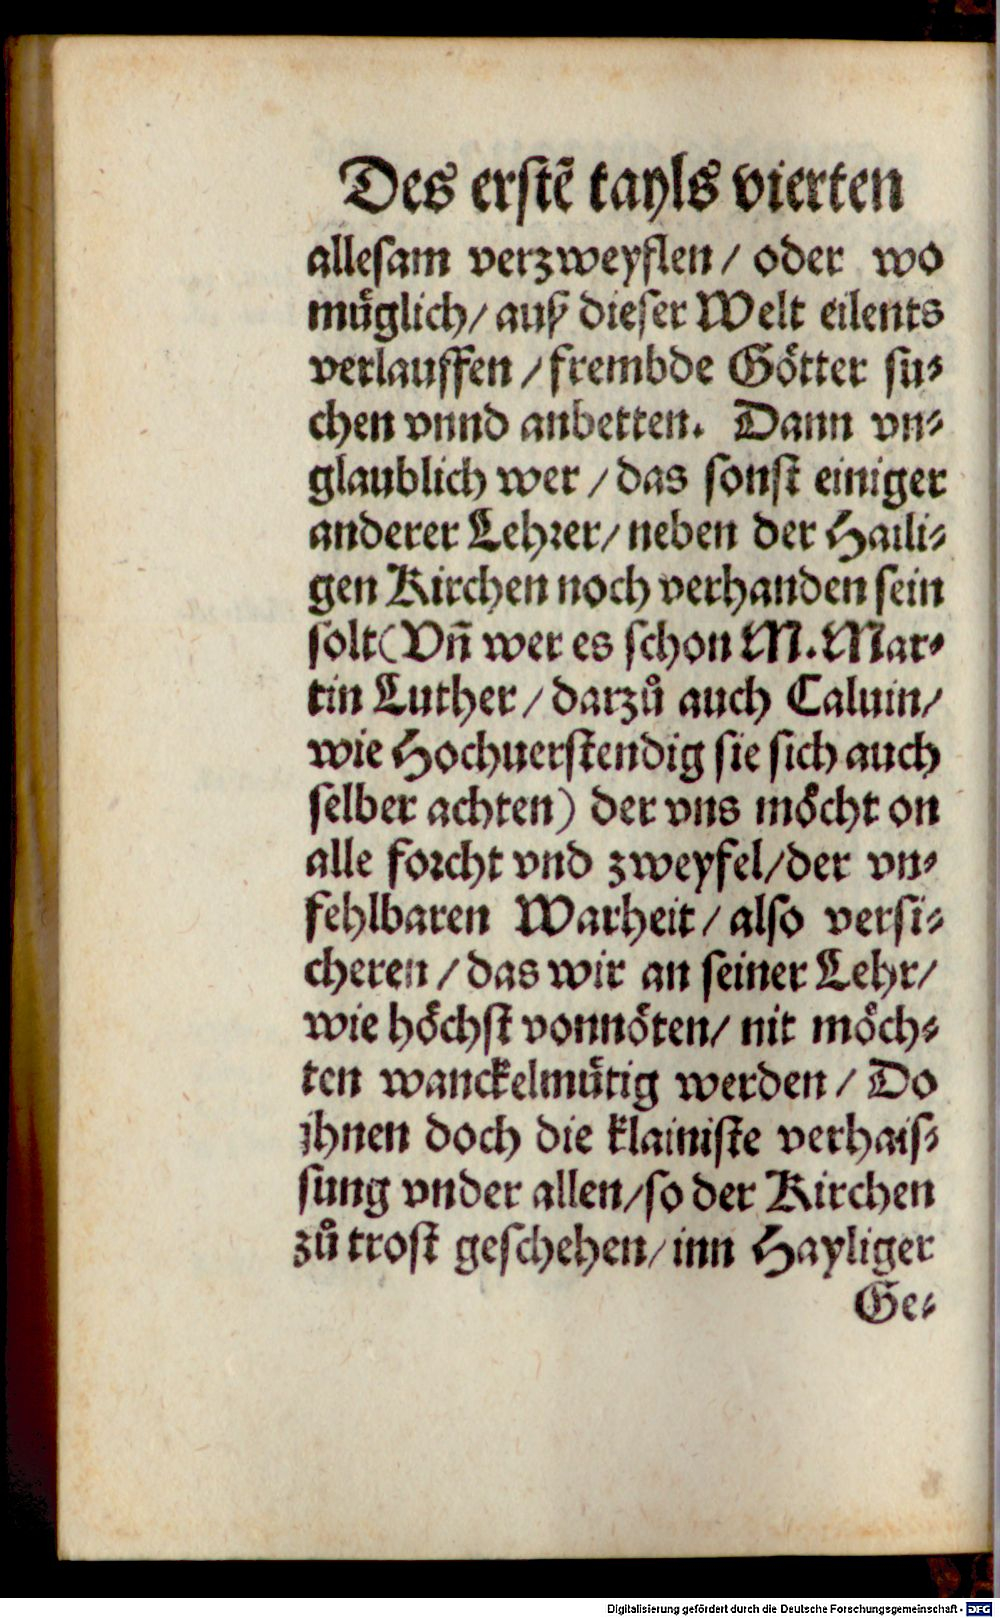 Des erstẽ tayls vierten
allesam verzweyflen / oder wo
muͤglich / auß dieser Welt eilents
verlauffen / frembde Goͤtter su⸗
chen vnnd anbetten. Dann vn⸗
glaublich wer / das sonst einiger
anderer Lehꝛer / neben der Haili⸗
gen Kirchen noch verhanden sein
solt (Vñ wer es schon M. Mar⸗
tin Luther / darzuͦ auch Caluin /
wie Hochuerstendig sie sich auch
selber achten) der vns moͤcht on
alle foꝛcht vnd zweyfel / der vn⸗
fehlbaren Warheit / also versi⸗
cheren / das wir an seiner Lehr /
wie hoͤchst vonnoͤten / nit moͤch⸗
ten wanckelmuͤtig werden / Do
jhnen doch die klainiste verhais⸗
sung vnder allen / so der Kirchen
zuͦ trost geschehen / inn Hayliger
Ge⸗
Digitalisierung gefördert durch die Deutsche Forschungsgemeinschaft - DFG